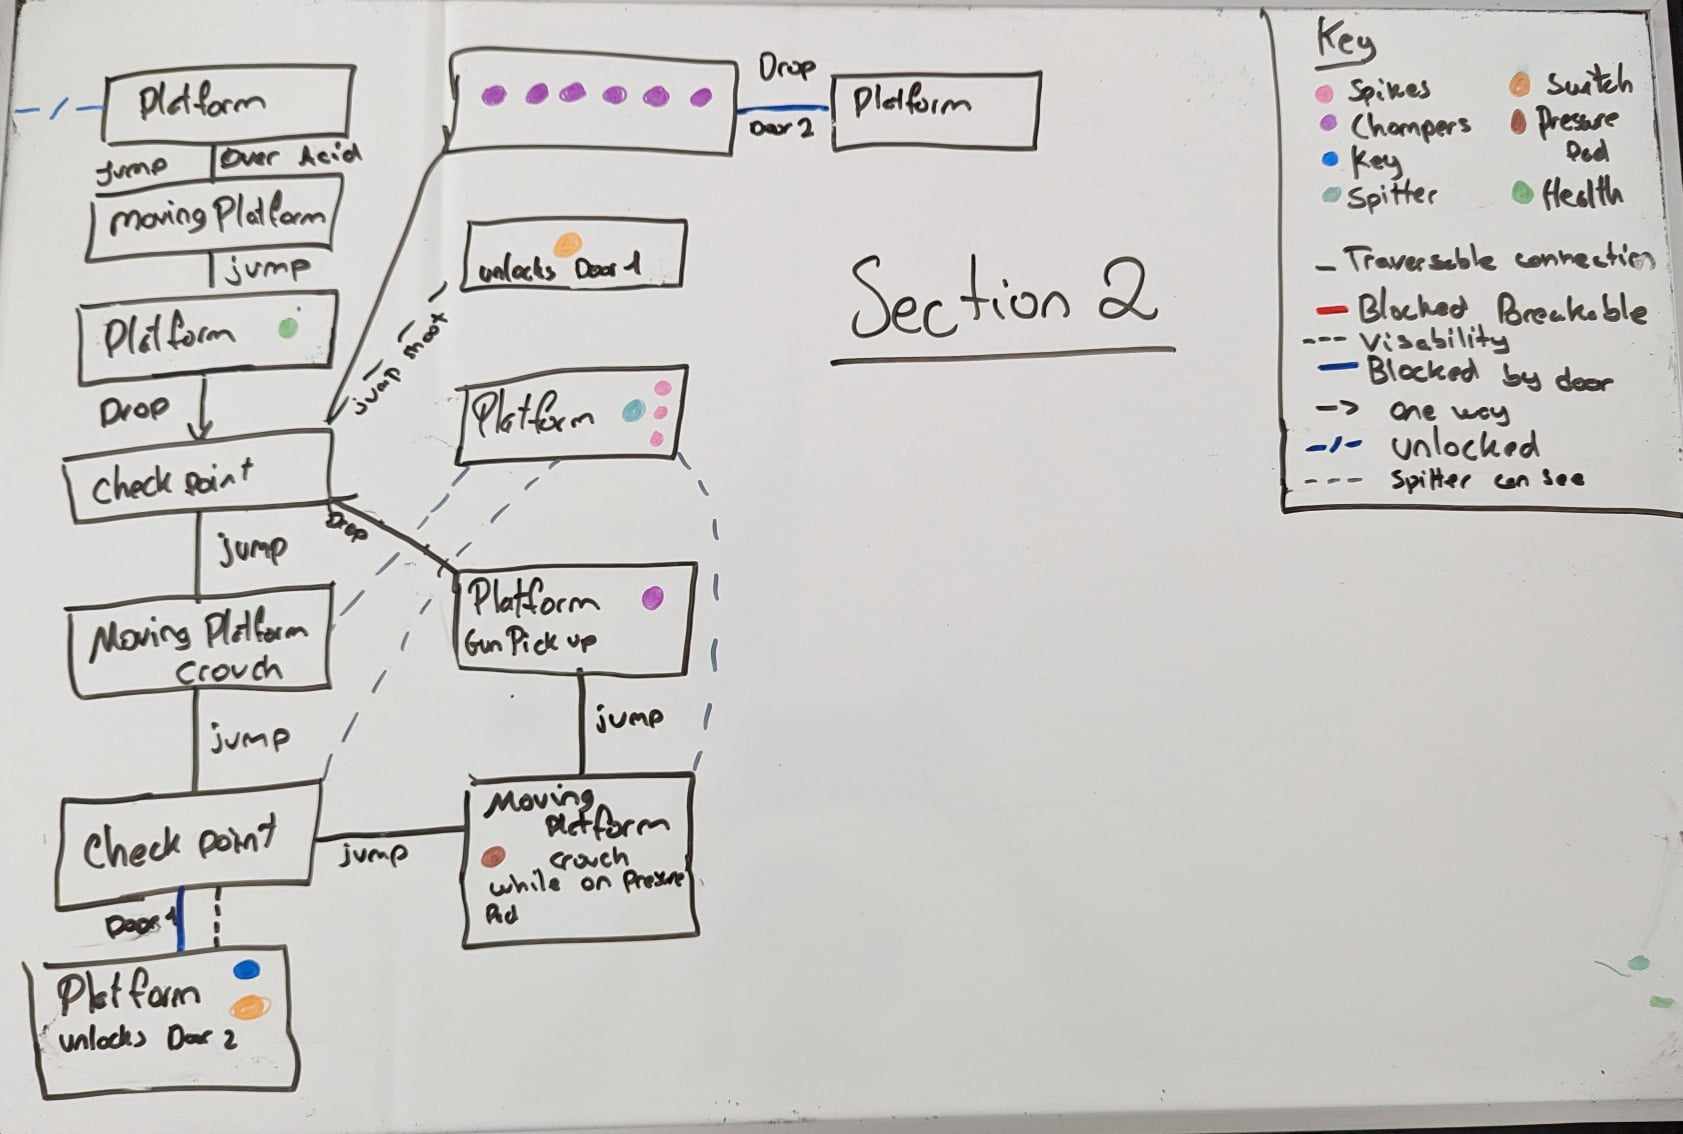 Platform
jump
Over Acid
moving Platform
jump
Platform
Drop
Check point
jump
Moving Platform
Crouch
jump
Check point
jump
Door 1
Platform
unlocks Door 2
Drop
Door 2
Platform
unlocks Door 1
jump shoot
Platform
Drop
Platform
Gun Pick up
jump
Moving
Platform
crouch
while on Presure
Pad
Section 2
Key
Spikes
Chompers
Key
Spitter
Switch
Presure
Pad
Health
Traversable connection
Blocked Breakable
Visability
Blocked by door
one way
unlocked
Spitter can see